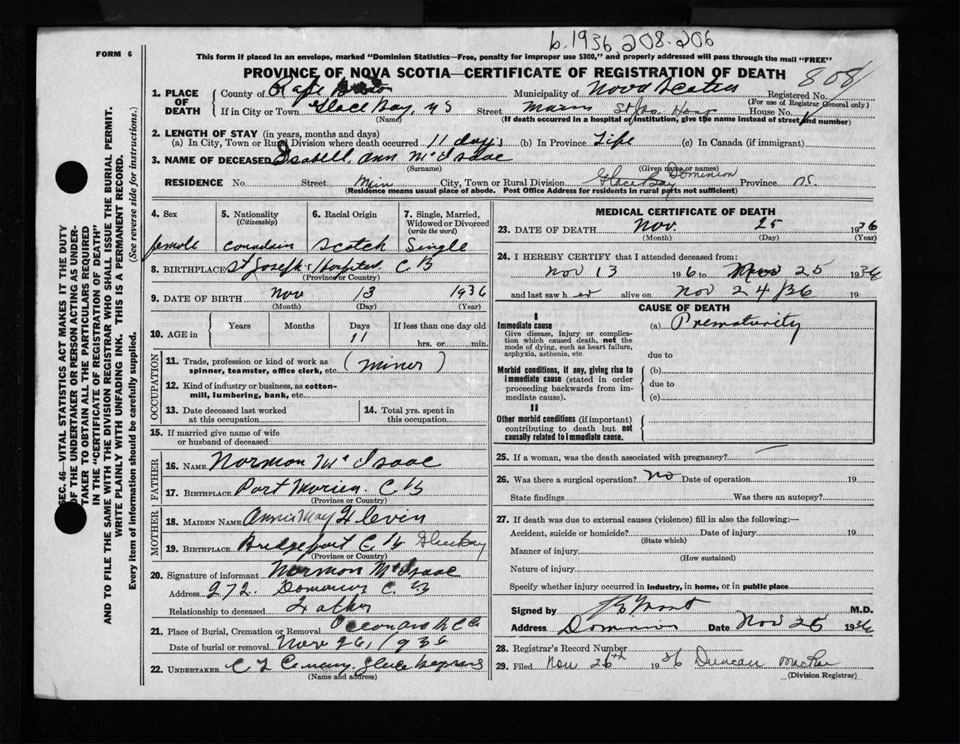 b.1936.208.206
FORM 6
This form if placed in an envelope, marked "Dominion Statistics—Free, penalty for improper use $300," and properly addressed will pass through the mail "FREE"
PROVINCE OF NOVA SCOTIA—CERTIFICATE OF REGISTRATION OF DEATH 808
1. PLACE OF DEATH
County of Cape Breton Municipality of Nova Scotia Registered No.
(For use of Registrar General only)
If in City or Town Glace Bay, NS Street House No.
(Name) (If death occurred in a hospital or institution, give the name instead of street and number)
2. LENGTH OF STAY (in years, months and days)
(a) In City, Town or Rural Division where death occurred 11 days (b) In Province Life (c) In Canada (if immigrant)
3. NAME OF DECEASED Isabell Ann McIsaac
(Surname) (Given name or names)
RESIDENCE No. Street Main City, Town or Rural Division Glace Bay Dominion Province NS.
(Residence means usual place of abode. Post Office Address for residents in rural parts not sufficient)
4. Sex
female
5. Nationality
(Citizenship)
Canadain
6. Racial Origin
Scotch
7. Single, Married, Widowed or Divorced
(write the word)
Single
8. BIRTHPLACE St Joseph's Hospital C B
(Province or Country)
9. DATE OF BIRTH Nov 13 1936
(Month) (Day) (Year)
10. AGE in Years Months Days If less than one day old
11 hrs. or min.
OCCUPATION
11. Trade, profession or kind of work as spinner, teamster, office clerk, etc. (minor)
12. Kind of industry or business, as cotton-mill, lumbering, bank, etc.
13. Date deceased last worked at this occupation
14. Total yrs. spent in this occupation
15. If married give name of wife or husband of deceased
FATHER
16. NAME Norman McIsaac
17. BIRTHPLACE Port Morien C B
(Province or Country)
MOTHER
18. MAIDEN NAME Annie May
19. BIRTHPLACE Bridgeport C B Glace Bay
(Province or Country)
20. Signature of informant Norman McIsaac
Address 272. Dominion C. B
Relationship to deceased Father
21. Place of Burial, Cremation or Removal
Date of burial or removal Nov 26, 1936
22. UNDERTAKER
(Name and address)
MEDICAL CERTIFICATE OF DEATH
23. DATE OF DEATH Nov. 25 1936
(Month) (Day) (Year)
24. I HEREBY CERTIFY that I attended deceased from:
Nov 13 1936 to Nov 25 1936
and last saw her alive on Nov 24 1936 19
CAUSE OF DEATH
I
Immediate cause (a) Prematurity
Give disease, injury or complication which caused death, not the mode of dying, such as heart failure, asphyxia, asthenia, etc
due to
Morbid conditions, if any, giving rise to immediate cause (stated in order proceeding backwards from immediate cause).
(b)
due to
(c)
II
Other morbid conditions (if important) contributing to death but not causally related to immediate cause.
25. If a woman, was the death associated with pregnancy?
26. Was there a surgical operation? No Date of operation 19
State findings Was there an autopsy?
27. If death was due to external causes (violence) fill in also the following:—
Accident, suicide or homicide? Date of injury 19
(State which)
Manner of injury
(How sustained)
Nature of injury
Specify whether injury occurred in industry, in home, or in public place
Signed by M.D.
Address Dominion Date Nov 25 1936
28. Registrar's Record Number
29. Filed Nov 26th 1936 Duncan
(Division Registrar)
SEC. 46—VITAL STATISTICS ACT MAKES IT THE DUTY
OF THE UNDERTAKER OR PERSON ACTING AS UNDER-
TAKER TO OBTAIN ALL THE PARTICULARS REQUIRED
IN THE "CERTIFICATE OF REGISTRATION OF DEATH"
AND TO FILE THE SAME WITH THE DIVISION REGISTRAR WHO SHALL ISSUE THE BURIAL PERMIT.
WRITE PLAINLY WITH UNFADING INK. THIS IS A PERMANENT RECORD.
Every item of information should be carefully supplied. (See reverse side for instructions.)